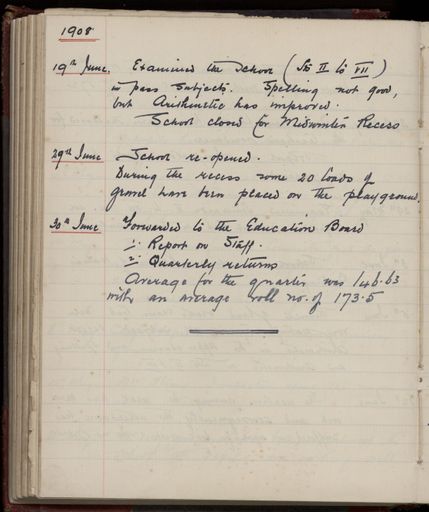 1908
19th June. Examined the School (Std II to VII)
in pass subjects. Spelling not good,
but Arithmetic has improved.
School closed for Midwinter Recess
29th June School re-opened.
During the recess some 20 loads of
gravel have been placed on the playground.
30th June Forwarded to the Education Board
1. Report on Staff.
2. Quarterly returns
Average for the quarter was 146.63
with an average roll no. of 173.5